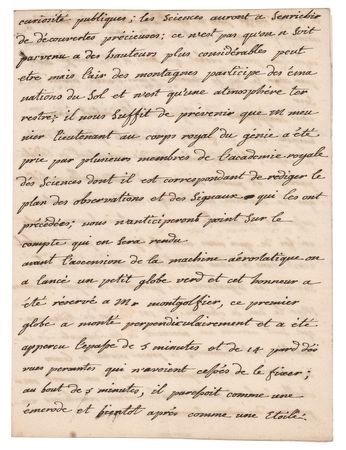 curiosité publiques; les Sciences auront a Senrichir
de découvertes précieuses; ce n'est pas qu'on n Soit
parvenu a des hauteurs plus considérables peut
etre mais l'air des montagnes participe des éma
nations du Sol et n'est qu'une atmosphère ter
restre; il nous Suffit de prévenir que M meu
nier lieutenant au corps royal du génie a été
prié par plusieurs membres de l'academie royale
des Sciences dont il est correspondant de rédiger le
plan des observations et des Signaux qui les ont
précédées; nous n'anticiperont point Sur le
compte qui en Sera rendu
avant l'ascension de la machine aërostatique on
a lancé un petit globe verd et cet honneur a
été réservé a Mr montgolfier, ce premier
globe a monté perpendiculairement et a été
apperçu l'espasse de 5 minutes et de 14 par dés
vues persantes qui n'avoient cessés de le fixer;
au bout de 5 minutes, il paressoit comme une
émerode et bientot après comme une Etoile.